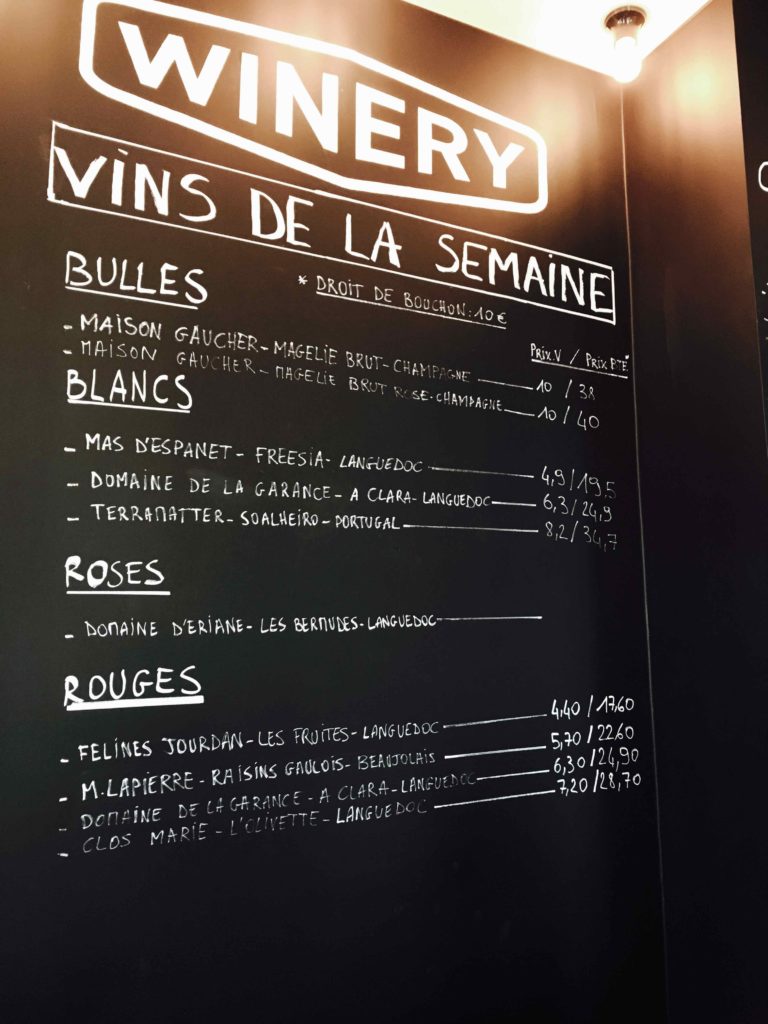 WINERY
VINS DE LA SEMAINE
BULLES
* DROIT DE BOUCHON: 10 €
PRIX.V / PRIX BTE
- MAISON GAUCHER - MAGELIE BRUT - CHAMPAGNE 10 / 38
- MAISON GAUCHER - MAGELIE BRUT ROSE - CHAMPAGNE 10 / 40
BLANCS
- MAS D'ESPANET - FREESIA - LANGUEDOC 4,9 / 19,5
- DOMAINE DE LA GARANCE - A CLARA - LANGUEDOC 6,3 / 24,9
- TERRAMATTER - SOALHEIRO - PORTUGAL 8,2 / 34,7
ROSES
- DOMAINE D'ERIANE - LES BERMUDES - LANGUEDOC
ROUGES
- FELINES JOURDAN - LES FRUITES - LANGUEDOC 4,40 / 17.60
- M. LAPIERRE - RAISINS GAULOIS - BEAUJOLAIS 5,70 / 22.60
- DOMAINE DE LA GARANCE - A CLARA - LANGUEDOC 6,30 / 24,90
- CLOS MARIE - L'OLIVETTE - LANGUEDOC 7,20 / 28,70